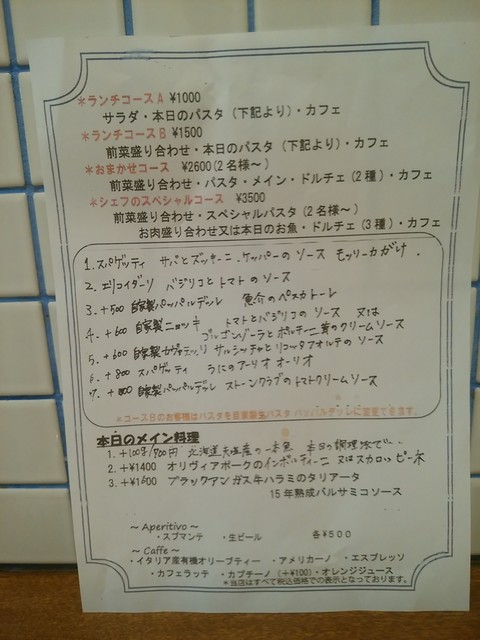 *ランチコースA ¥1000
サラダ・本日のパスタ(下記より)・カフェ
*ランチコースB ¥1500
前菜盛り合わせ・本日のパスタ(下記より)・カフェ
*おまかせコース ¥2600(2名様~)
前菜盛り合わせ・パスタ・メイン・ドルチェ(2種)・カフェ
*シェフのスペシャルコース ¥3500
前菜盛り合わせ・スペシャルパスタ(2名様~)
お肉盛り合わせ又は本日のお魚・ドルチェ(3種)・カフェ
1. スパゲッティ サバとズッキーニ、ケッパーのソース モッリーカがけ.
2. エリコイダーリ バジリコとトマトのソース
3. +500 自家製パッパルデッレ 魚介のペスカトーレ
4. +600 自家製ニョッキ トマトとバジリコのソース 又は
ゴルゴンゾーラとポルチーニ茸のクリームソース
5. +600 自家製 サルシッチャとリコッタフォルテのソース
6. +800 スパゲティ うにのアーリオ オーリオ
7. +800 自家製パッパルデッレ ストーンクラブのトマトクリームソース
*コースBのお客様はパスタを自家製生パスタ パッパルデッレに変更できます。
本日のメイン料理
1. 北海道天塩産の一本魚 本日の調理法で…
2. +¥1400 オリヴィアポークのインボルティーニ 又はスカロッピーネ
3. +¥1600 ブラックアンガス牛ハラミのタリアータ
15年熟成バルサミコソース
~ Aperitivo ~
・スプマンテ ・生ビール 各¥500
~ Caffe ~
・イタリア産有機オリーブティー ・アメリカーノ ・エスプレッソ
・カフェラッテ ・カプチーノ(+¥100)・オレンジジュース
*当店はすべて税込価格での表示となっております。